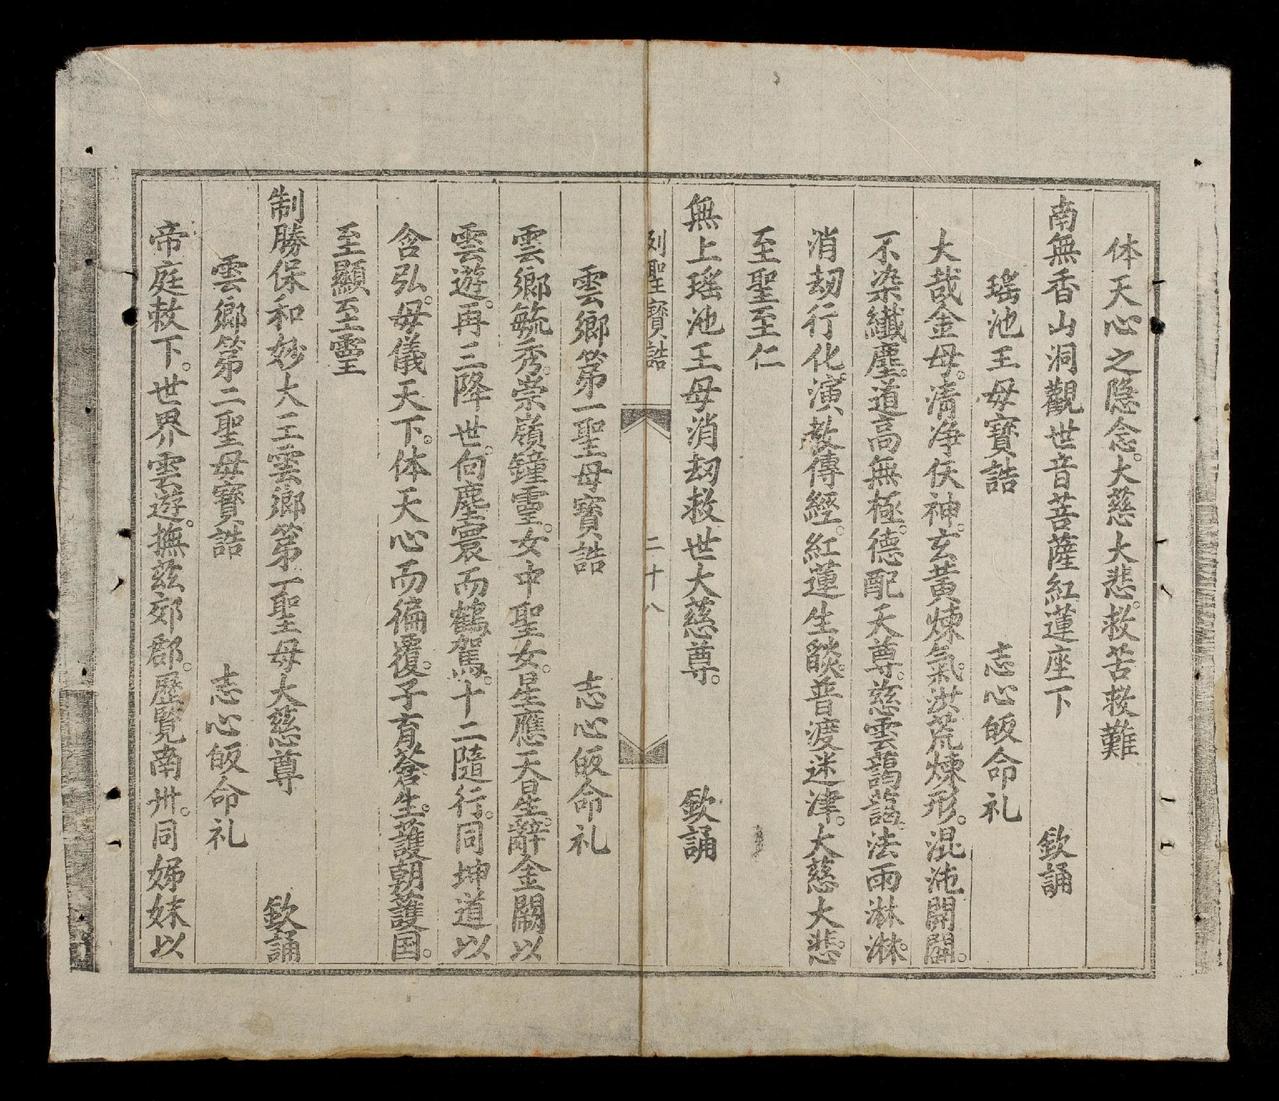 体天心之隐念。大慈大悲。救苦救難
南無香山洞觀世音菩薩紅蓮座下 欽誦
瑶池王母寶誥 志心皈命礼
大哉金母。清净伕神。玄黄煉氣。洪荒煉形。混沌開闢。
不染纖塵。道高無極。德配天尊。慈雲藹藹。法雨淋淋。
消刼行化。演教傳經。紅蓮生燄。普渡迷津。大慈大悲。
至聖至仁
無上瑶池王母消刼救世大慈尊。 欽誦
列聖寶誥 二十八
雲鄉第一聖母寶誥 志心皈命礼
雲鄉毓秀。崇嶺鐘靈。女中聖女。星應天星。辭金闕以
雲遊。再三降世。向塵寰而鶴駕。十二隨行。同坤道以
含弘。母儀天下。体天心而徧覆。子育倉生。護朝護国。
至顯至靈
制勝保和妙大王雲鄉第一聖母大慈尊 欽誦
雲鄉第二聖母寶誥 志心皈命礼
帝庭敕下。世界雲遊。撫茲郊郡。歷覧南卅。同姊妹以